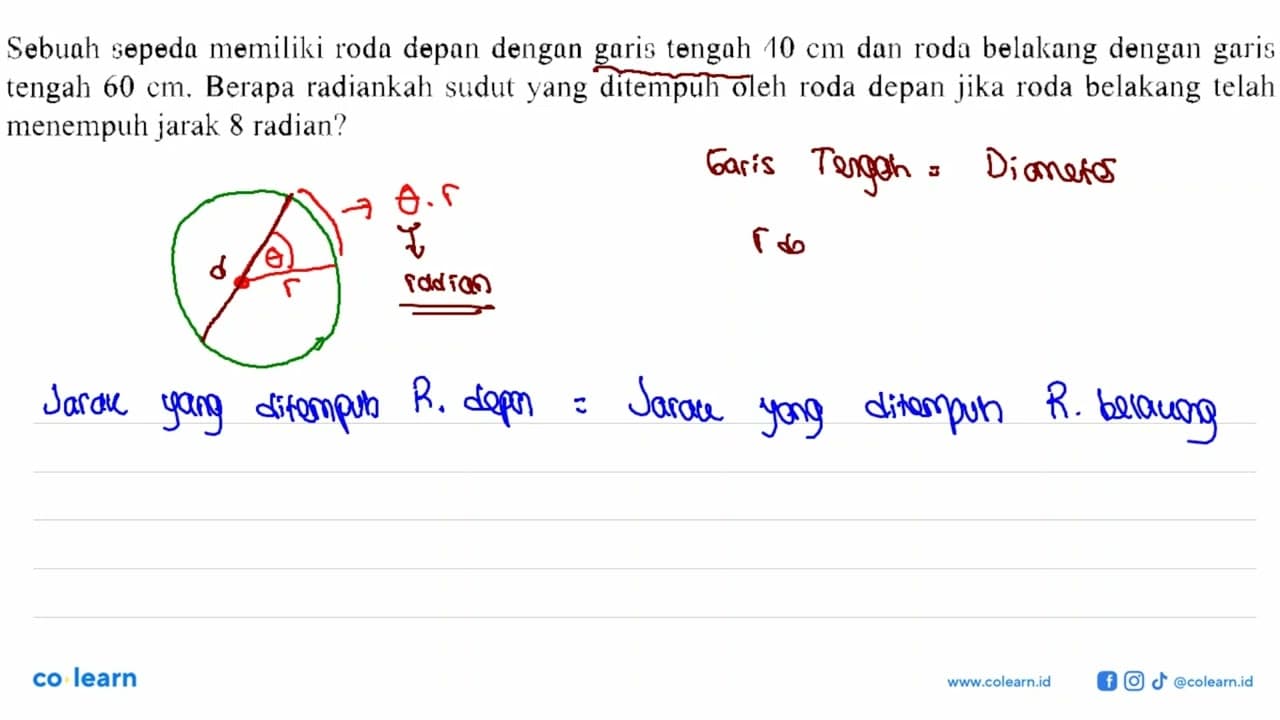 Sebuah sepeda memiliki roda depan dengan garis tengah 40 cm dan roda belakang dengan garis
tengah 60 cm. Berapa radiankah sudut yang ditempuh oleh roda depan jika roda belakang telah
menempuh jarak 8 radian?
Garis Tengah = Diameter
→ θ . r
r do
d θ r
radian
Jarak yang ditempuh R. depan = Jarak yang ditempuh R. belakang
co learn
www.colearn.id @colearn.id